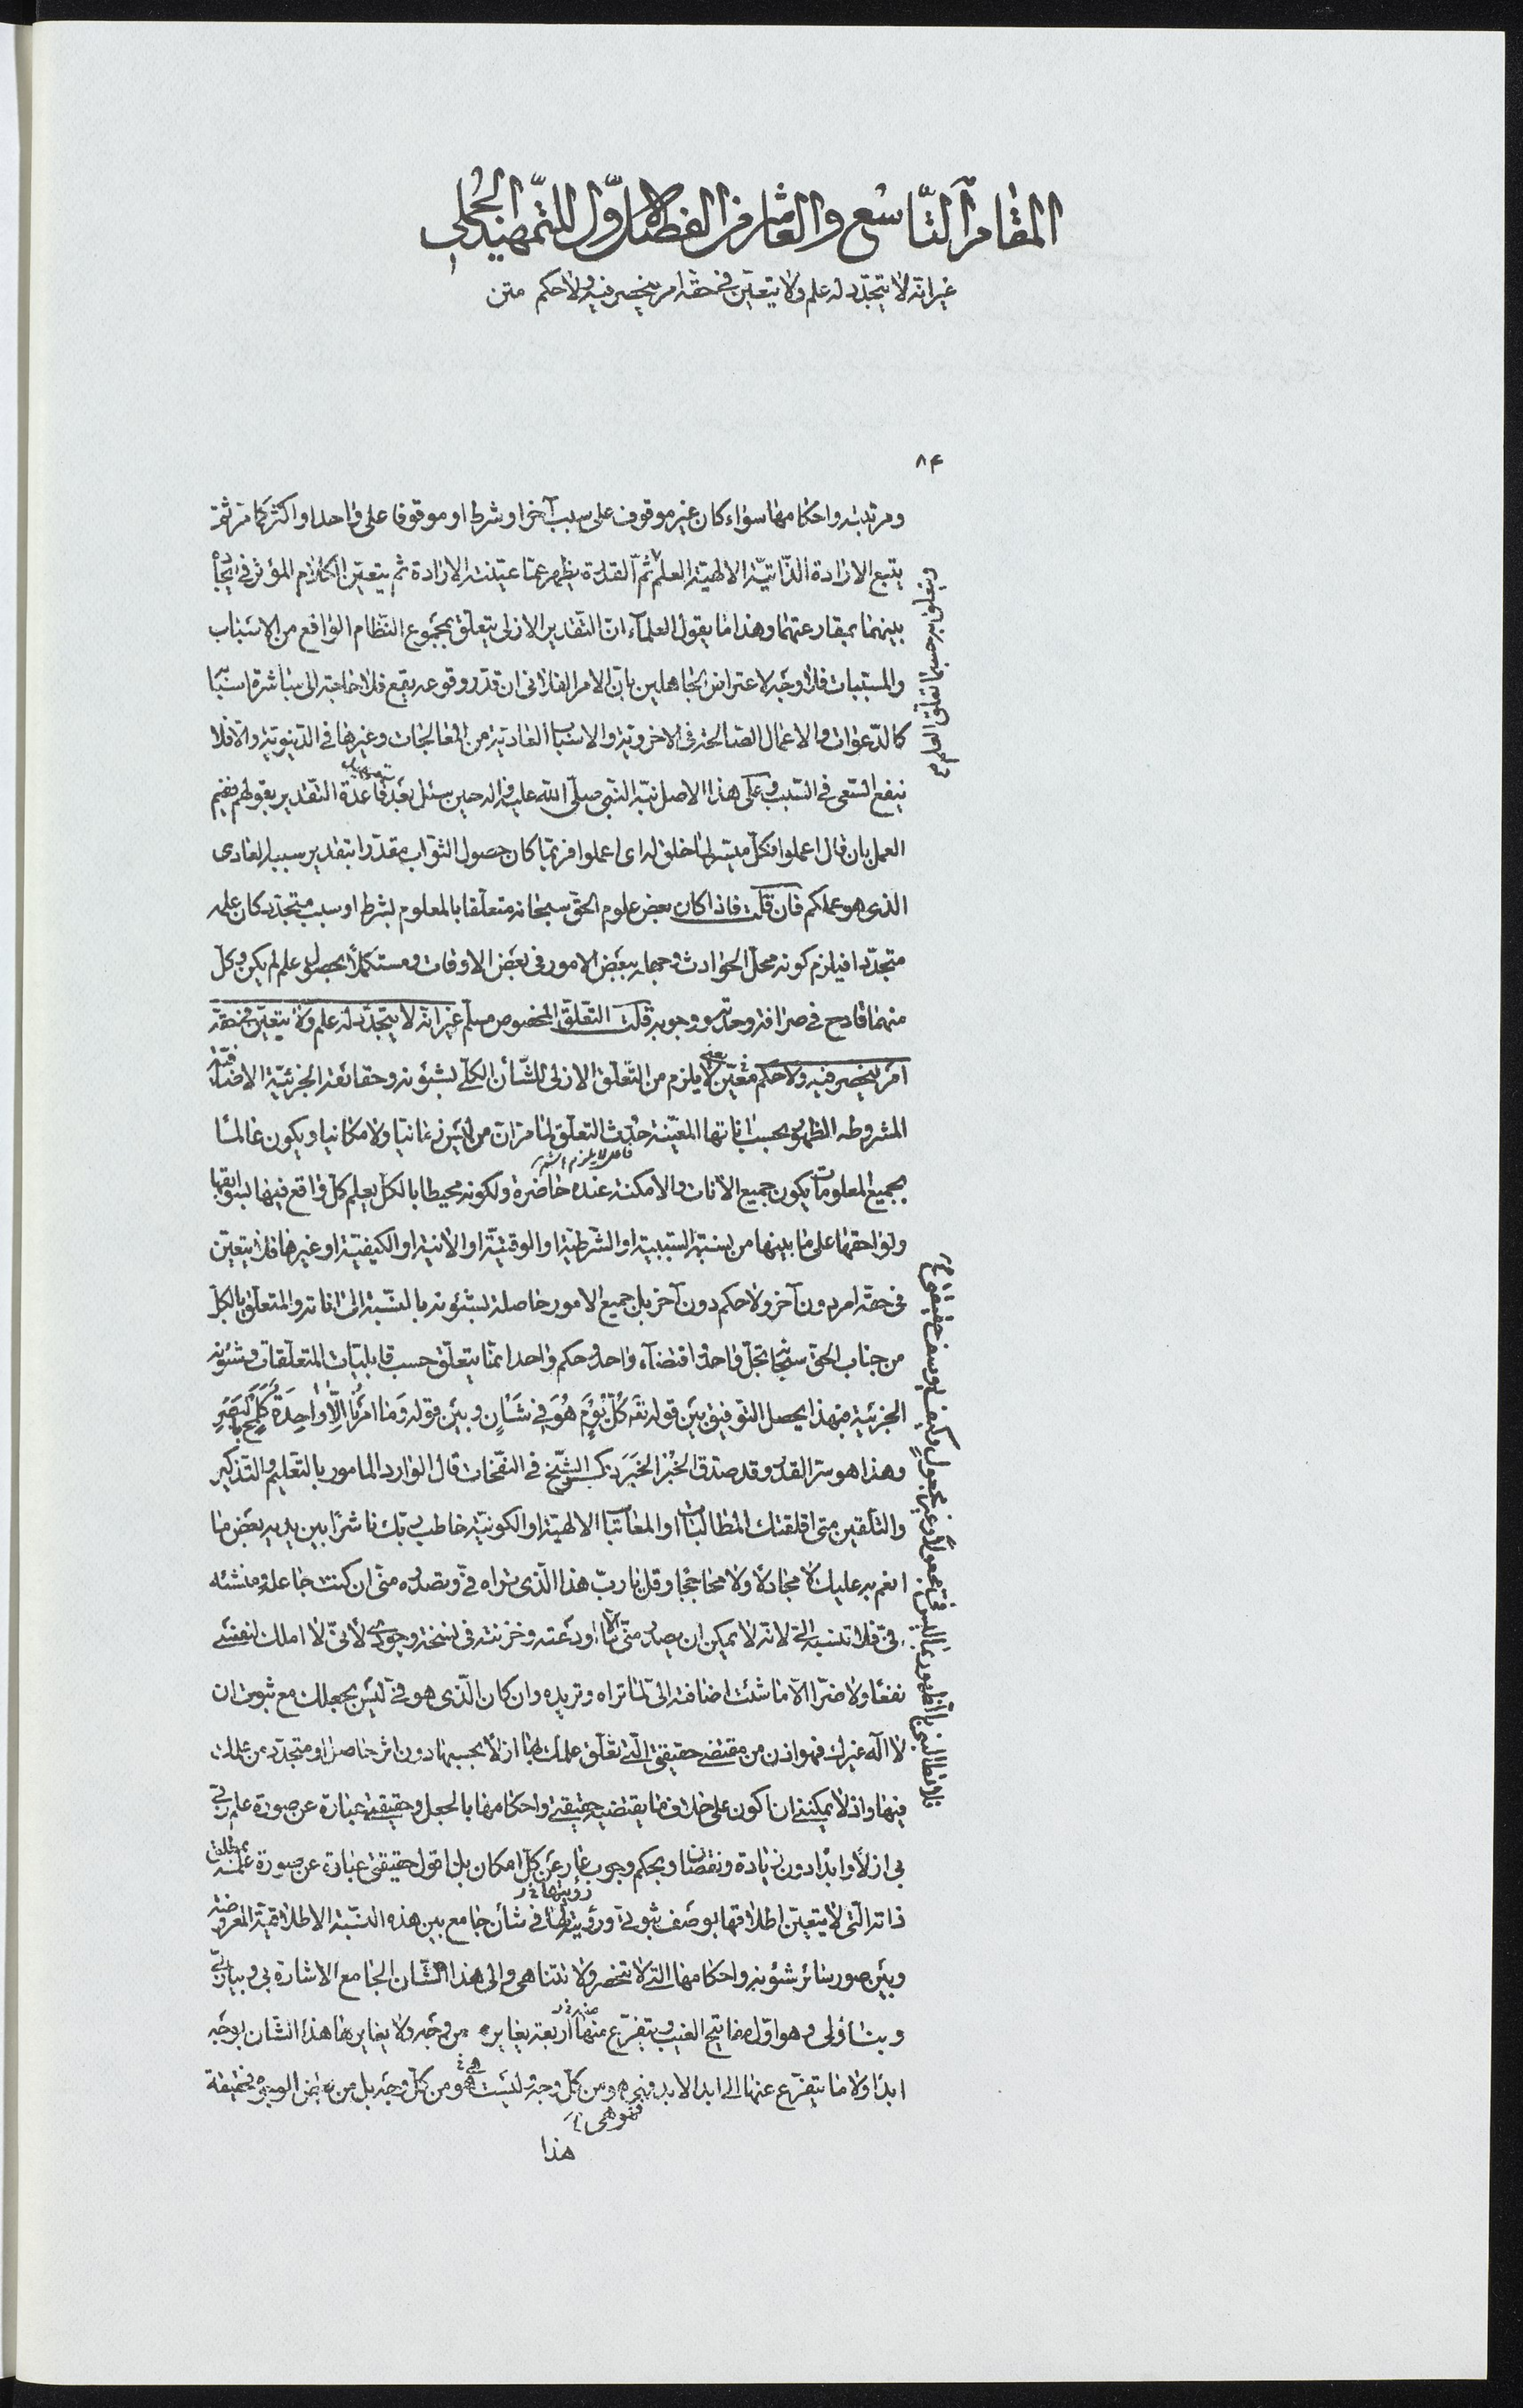 المقام التاسع والعاشر من الفصل الاول للتمهيد الجملي
غير انه لا يتجدد له علم ولا يتعين في حقه امر ينحصر فيه ولا حكم متن
۸۴
ومرتبته واحكامها سواء كان غير موقوف على سبب آخر او شرط او موقوفا على واحد او اكثر كما مر ثم
يتبع الارادة الذاتية الالهية العلم ثم القدرة يظهر عما عينته الارادة ثم يتعين الكلام المؤثر في ايجاده
بينهما بمقارعتهما وهذا ما يقول العلماء ان التقدير الازلى يتعلق بمجموع النظام الواقع من الاسباب
والمسببات فلا وجه لاعتراض الجاهلين بان الامر الفلانى ان قدر وقوعه يقع فلا حاجة الى مباشرة اسبابه
كالدعوات والاعمال الصالحة فى الاخروية والاسباب العادية من المعالجات وغيرها فى الدنيوية والا فلا
ينفع السعى فى السبب وعلى هذا الاصل نبه النبى صلى الله عليه واله حين سئل بعد قاعدة التقدير بقولهم ففيم
العمل بان قال اعملوا فكل ميسر لما خلق له اى اعملوا فربما كان حصول الثواب مقدرا بتقدير سببه العادى
الذى هو عملكم فان قلت فاذا كان بعض علوم الحق سبحانه متعلقا بالمعلوم بشرط او سبب متجدد كان علمه
متجددا فيلزم كونه محل الحوادث وجهله ببعض الامور فى بعض الاوقات ومستكملا بحصول علم لم يكن وكل
منهما قادح فى صرافة وحدته ووجوبه قلت التعلق المخصوص مسلم غير انه لا يتجدد له علم ولا يتعين فى حقه
امر ينحصر فيه ولا حكم معين لا يلزم من التعلق الازلى للشأن الكلى بشئونه وحقائقه الجزئية الاضافية
المشروطة الظهور بحسب اناتها المعينة حدث التعلق لما مر ان من ليس زمانيا ولا مكانيا ويكون عالما
بجميع المعلومات يكون جميع الانات والامكنة عنده حاضرة ولكونه محيطا بالكل يعلم كل واقع فيها بسوابقها
ولواحقها على ما بينها من نسبة السببية او الشرطية او الوقتية او الانية او الكيفية او غيرها فلا يتعين
فى حقه امر دون آخر ولا حكم دون آخر بل جميع الامور حاصلة بشئونه بالنسبة الى اناته والمتعلق بالكل
من جناب الحق سبحانه تجل واحد واقتضاء واحد وحكم واحد انما يتعلق حسب قابليات المتعلقات وشئونه
الجزئية فبهذا يحصل التوفيق بين قوله تعه كل يوم هو في شأن وبين قوله وما امرنا الا واحدة كلمح بالبصر
وهذا هو سر القدر وقد صدق الخبر الخبر ذكره الشيخ فى النفحات قال الوارد المامور بالتعليم والتذكير
والتلقين متى اقلقتك المطالبات او المعاتبات الالهية او الكونية خاطب ربك ناشرا بين يديه بعض ما
انعم به عليك لا مجادلا ولا محاججا وقل يا رب هذا الذى تراه فى وتصدره منى ان كنت جاعله ومنشئه
فى فلا تنسبه الى لانه لا يمكن ان يصدر منى الا ما اودعته وخزنته فى نسخة وجودى لانى لا املك لنفسى
نفعا ولا ضرا الا ما شئت اضافته الى لما تراه وتريده وان كان الذى هو فى ليس بجعلك مع ثبوت ان
لا اله غيرك فهو اذن من مقتضى حقيقتى التى تعلق علمك بها ازلا بحسبها دون اثر حاصل او متجدد من علمك
فيها واذ لا يمكننى ان اكون على خلاف ما يقتضيه حقيقتى واحكامها بالجعل وحقيقتى عبارة عن صورة علم ربى
بى ازلا وابدا دون زيادة ونقصان وبحكم وجوب عار عن كل امكان بل اقول حقيقتى عبارة عن صورة علمه
ذاته التى لا يتعين اطلاقها بوصف ثبوتى ورؤيته لها فى شأن جامع بين هذه النسبة الاطلاقية المعروضة
وبين صور سائر شئونه واحكامها التى لا تنحصر ولا تتناهى والى هذا الشان الجامع الاشارة بى وبيانى
وبنا ولى وهو اول مفاتيح الغيب ويتفرع منها اربعة يغايره من وجه ولا يغايرها هذا الشان بوجه
ابدا ولا ما يتفرع عنها الى ابد الابد فهى هو من كل وجه وليست هو من كل وجه بل من بعض الوجوه فحقيقة
فهو هى
هذا